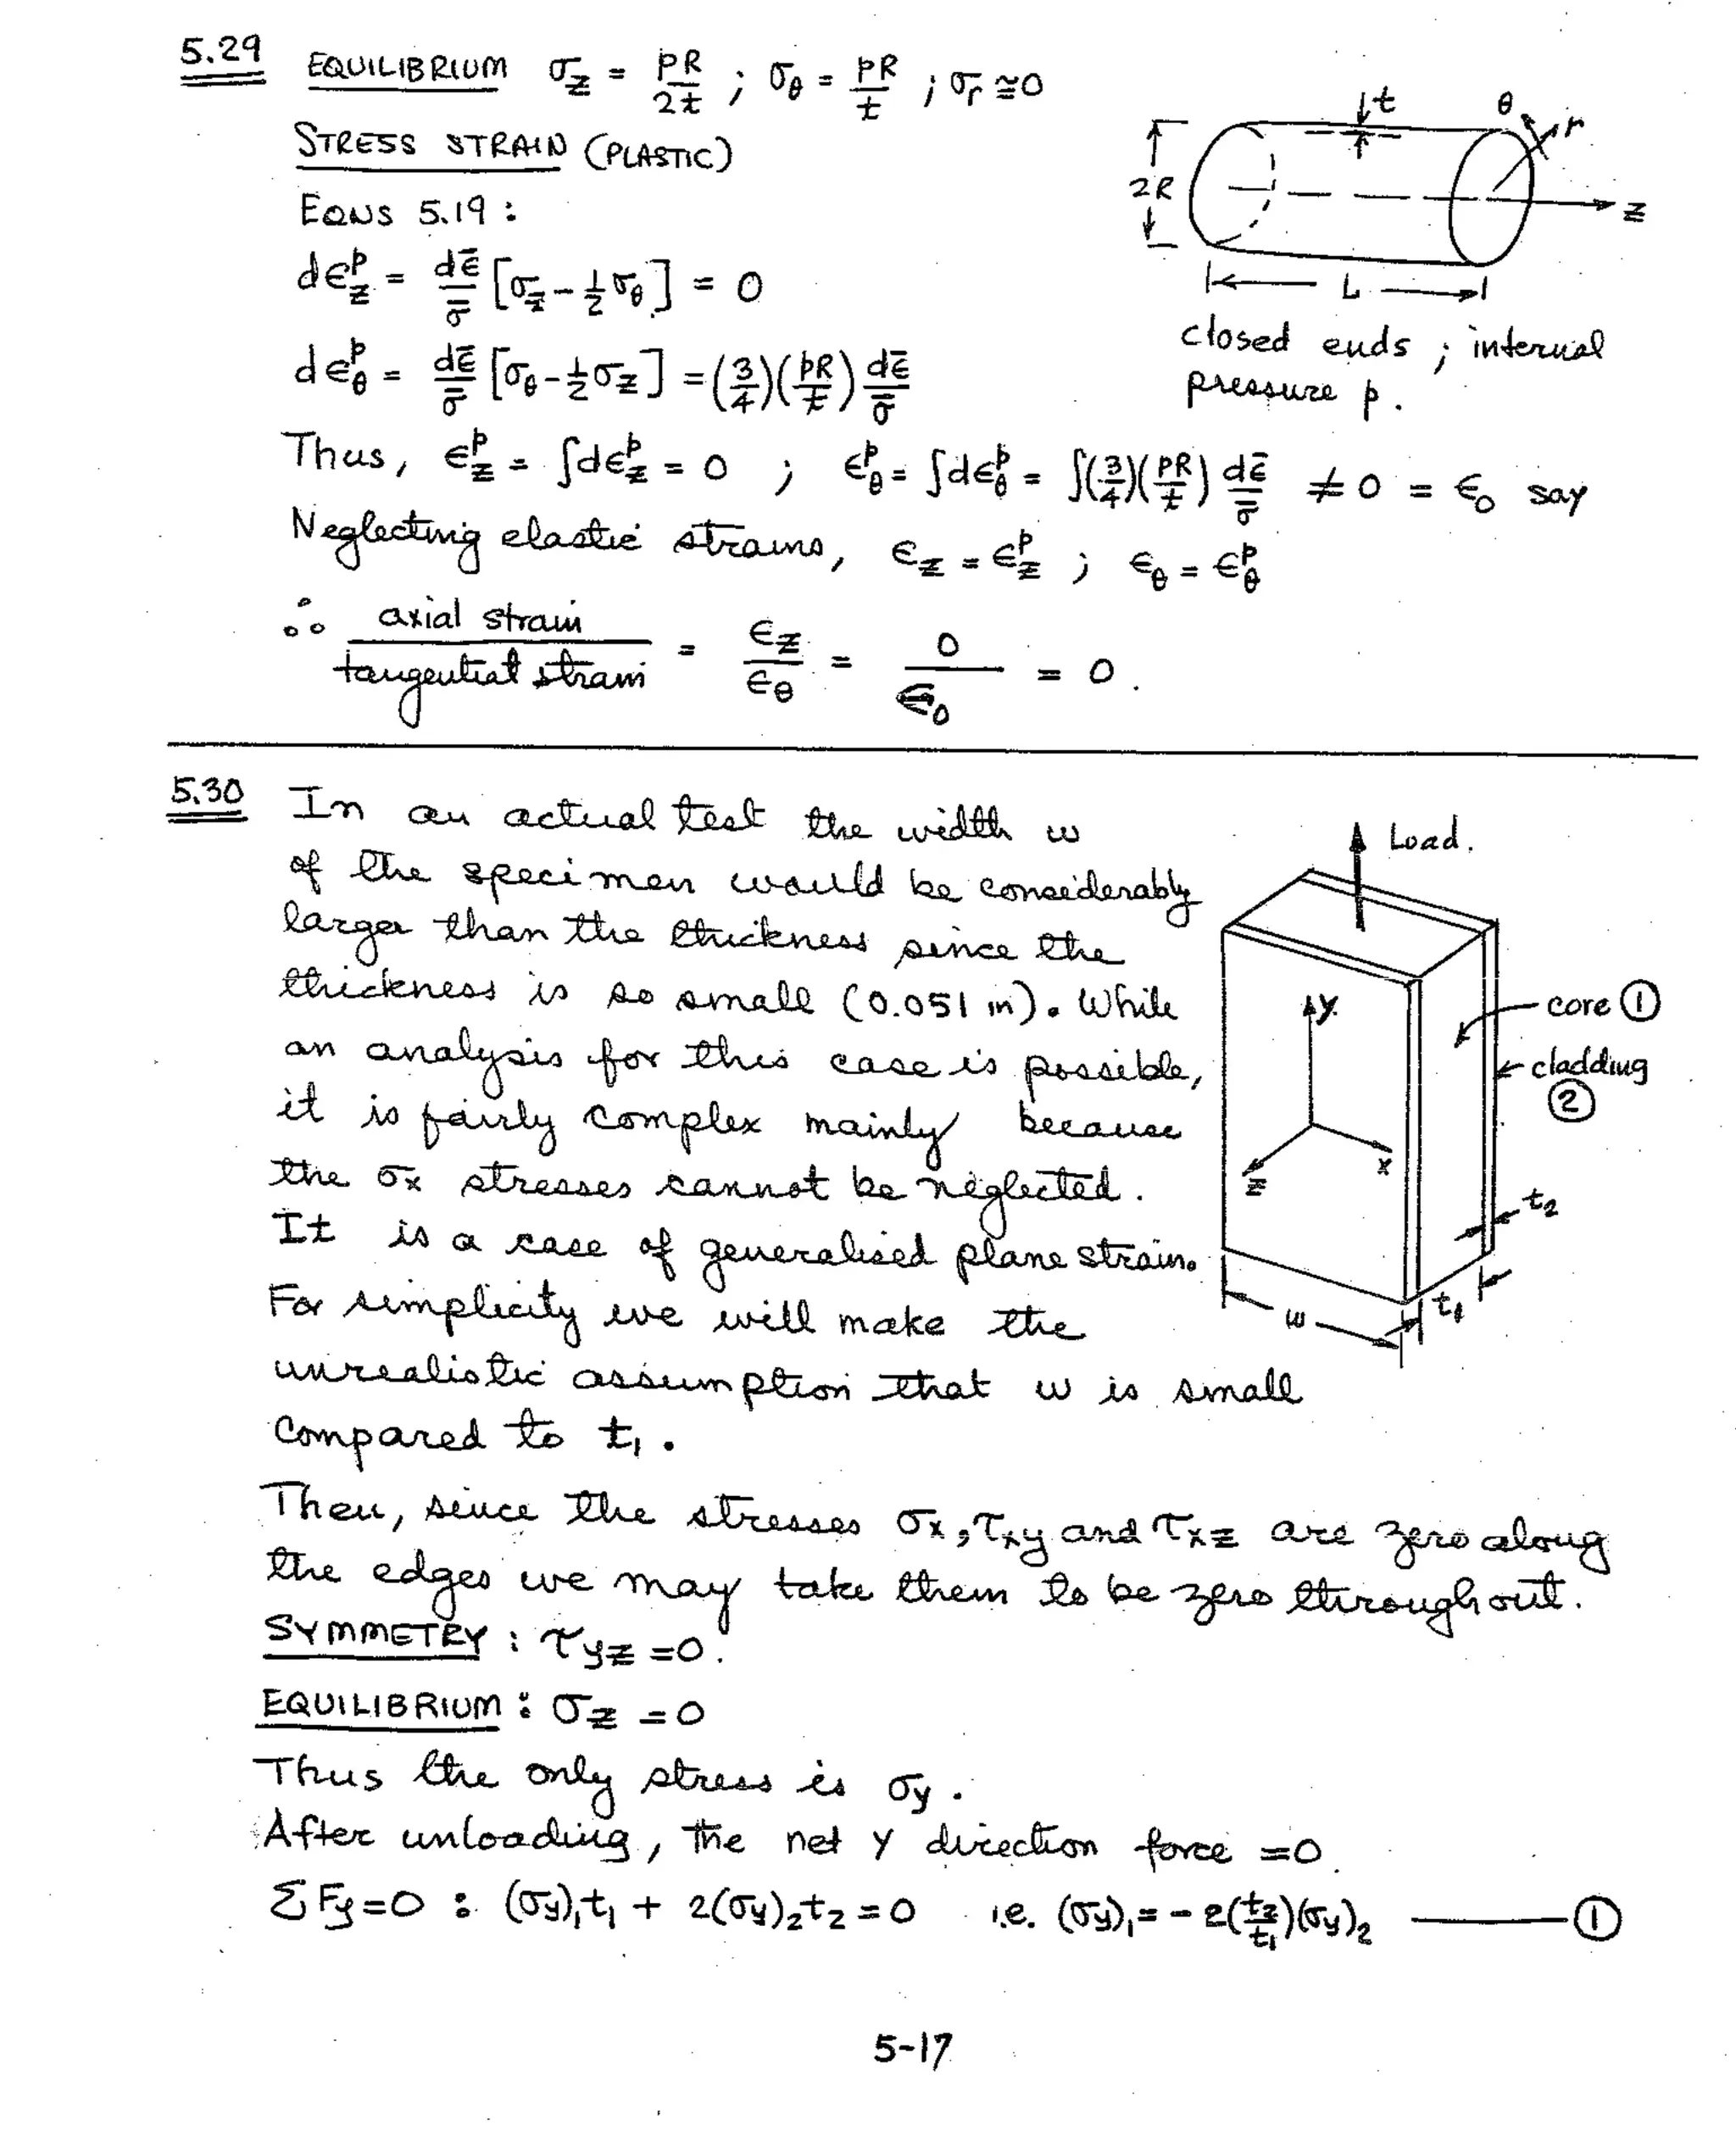 5.29 EQUILIBRIUM σz = pR/2t ; σθ = pR/t ; σr ≅ 0
STRESS STRAIN (PLASTIC)
EQNS 5.19 :
dεz^p = dε̄/σ̄ [σz - ½σθ] = 0
dεθ^p = dε̄/σ̄ [σθ - ½σz] = (3/4)(pR/t) dε̄/σ̄
t
θ
r
2R
z
L
closed ends ; internal
pressure p .
Thus, εz^p = ∫dεz^p = 0 ; εθ^p = ∫dεθ^p = ∫(3/4)(pR/t) dε̄/σ̄ ≠ 0 = ε0 say
Neglecting elastic strains, εz = εz^p ; εθ = εθ^p
∴ axial strain / tangential strain = εz/εθ = 0/ε0 = 0 .
5.30 In an actual test the width w
of the specimen would be considerably
larger than the thickness since the
thickness is so small (0.051 in). While
an analysis for this case is possible,
it is fairly complex mainly because
the σx stresses cannot be neglected.
It is a case of generalised plane strain.
For simplicity we will make the
unrealistic assumption that w is small
compared to t1 .
Load.
y
x
z
core ①
cladding
②
t2
t1
w
Then, since the stresses σx, τxy and τxz are zero along
the edges we may take them to be zero throughout.
SYMMETRY : τyz = 0.
EQUILIBRIUM : σz = 0
Thus the only stress is σy .
After unloading, the net y direction force = 0.
ΣFy = 0 : (σy)1t1 + 2(σy)2t2 = 0 i.e. (σy)1 = - 2(t2/t1)(σy)2 ——— ①
5-17